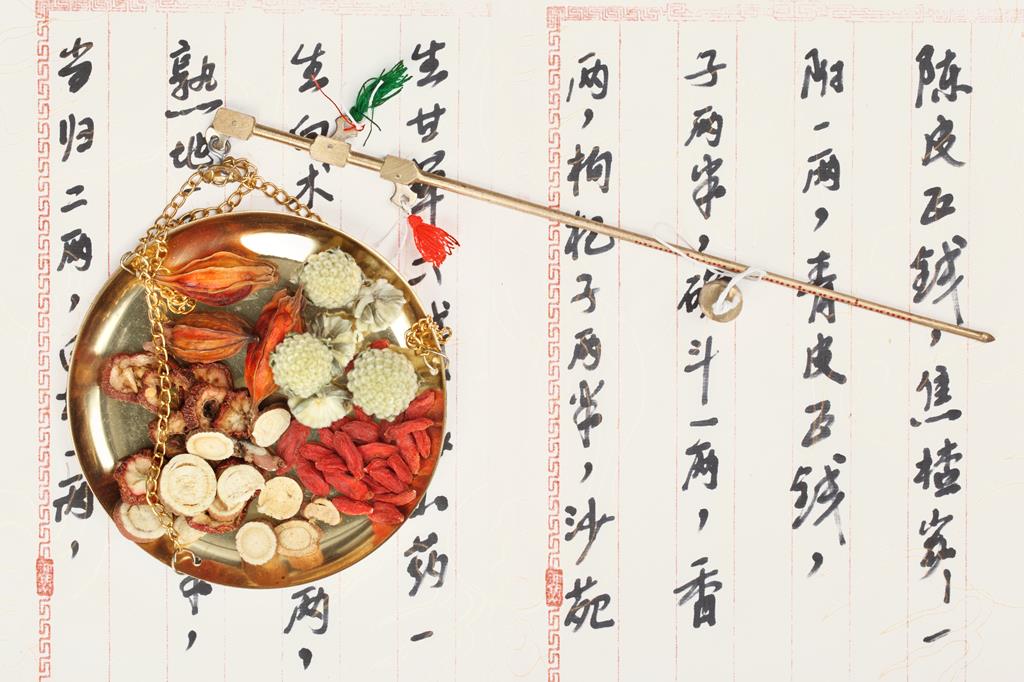 当归二两，两，
熟地中，
生白术两，
生甘草药一
两，枸杞子两半，沙苑
子两半，斗一两，香
附一两，青皮五钱，
陈皮五钱，焦楂炭一